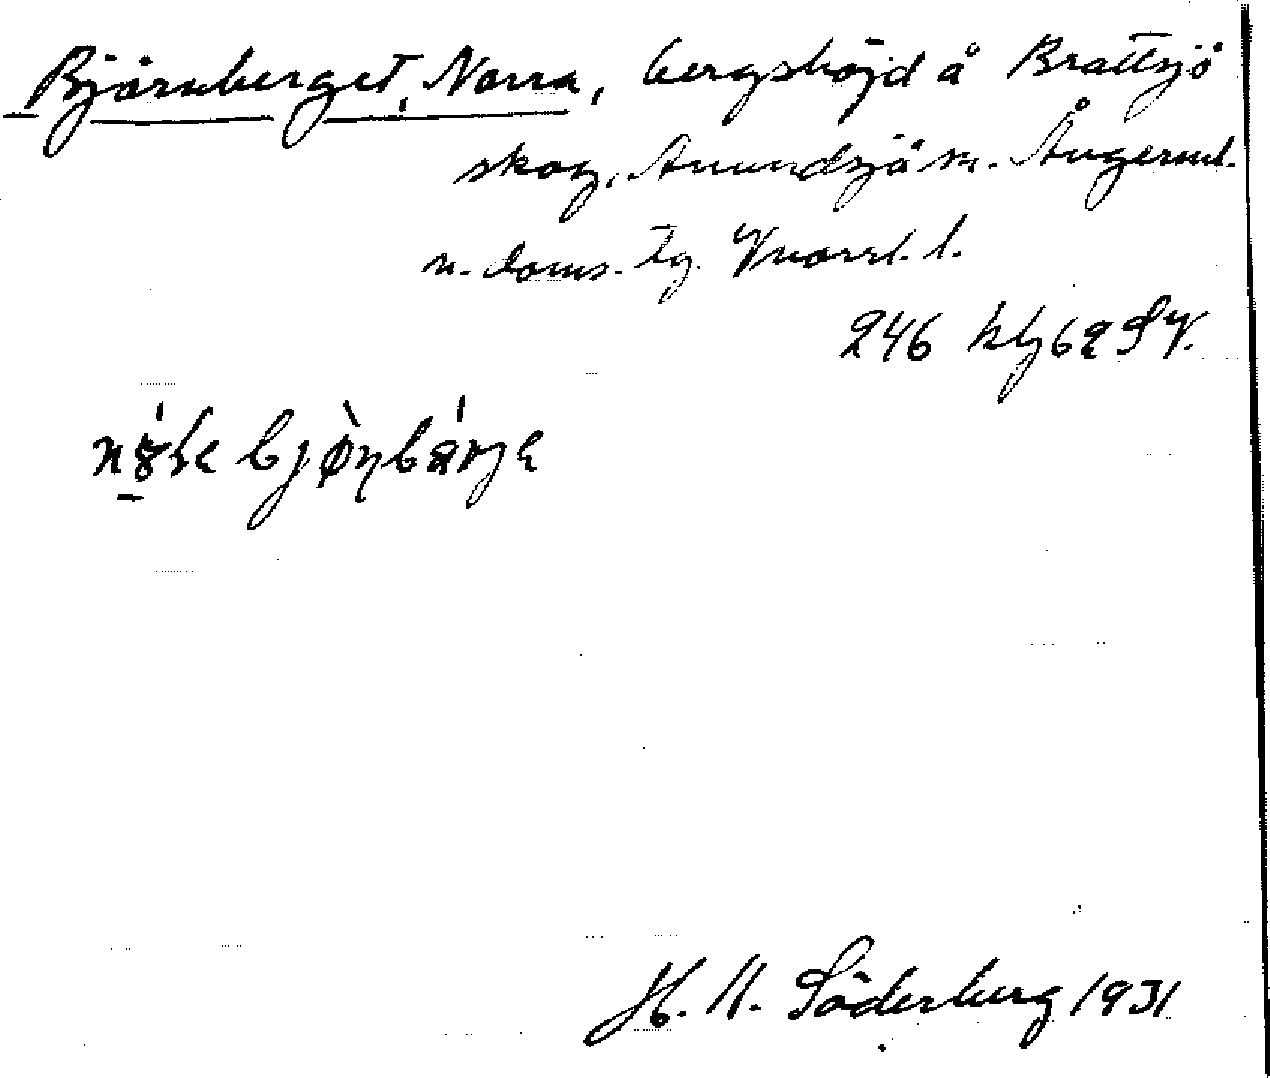 Björnberget, Norra, bergshöjd å Brattsjö
skog, Anundsjö sn. Ångerml.
n. doms. tg. Vnorrl. l.
246 kbg 62 SV.
bjø̀ɳbárjə
H. N. Söderberg 1931